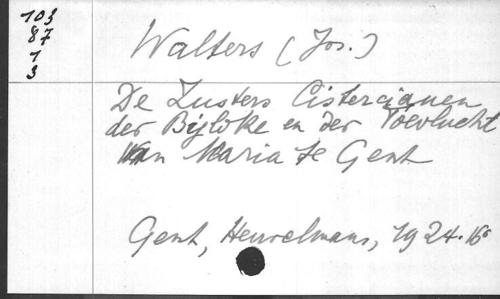 103
87
1
3
Walters (Jos.)
De Zusters Cistercianen
der Bijloke en der Toevlucht
van Maria te Gent
Gent, Heuvelmans, 1924. 16°